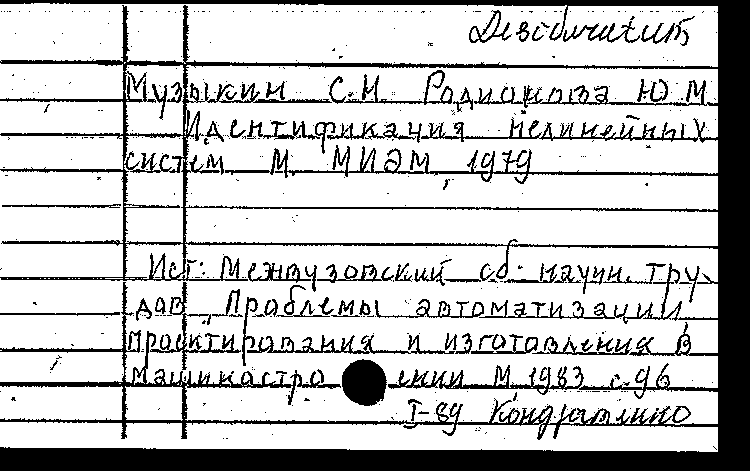 Музыкин С.Н. Родионова Ю.М.
Идентификация нелинейных
систем М. МИЭМ 1979
Ист: Межвузовский сб. научн. тру-
дов „Проблемы автоматизации
проектирования и изготовления в
машиностроении М 1983 с.96
I-89